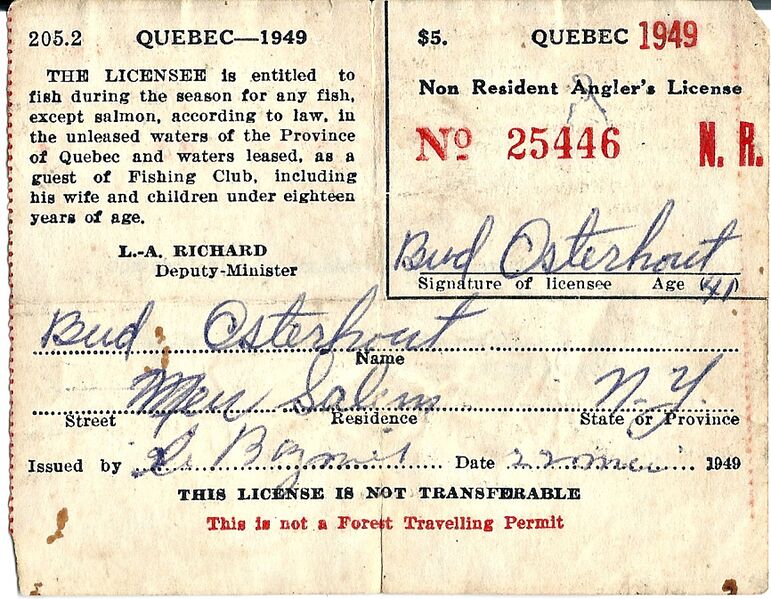 205.2 QUEBEC—1949
THE LICENSEE is entitled to
fish during the season for any fish,
except salmon, according to law, in
the unleased waters of the Province
of Quebec and waters leased, as a
guest of Fishing Club, including
his wife and children under eighteen
years of age.
L.-A. RICHARD
Deputy-Minister
$5. QUEBEC 1949
Non Resident Angler's License
No 25446 N. R.
Bud Osterhout
Signature of licensee Age 41
Bud Osterhout
Name
Salem N.Y.
Street Residence State or Province
Issued by Date 22 mai 1949
THIS LICENSE IS NOT TRANSFERABLE
This is not a Forest Travelling Permit